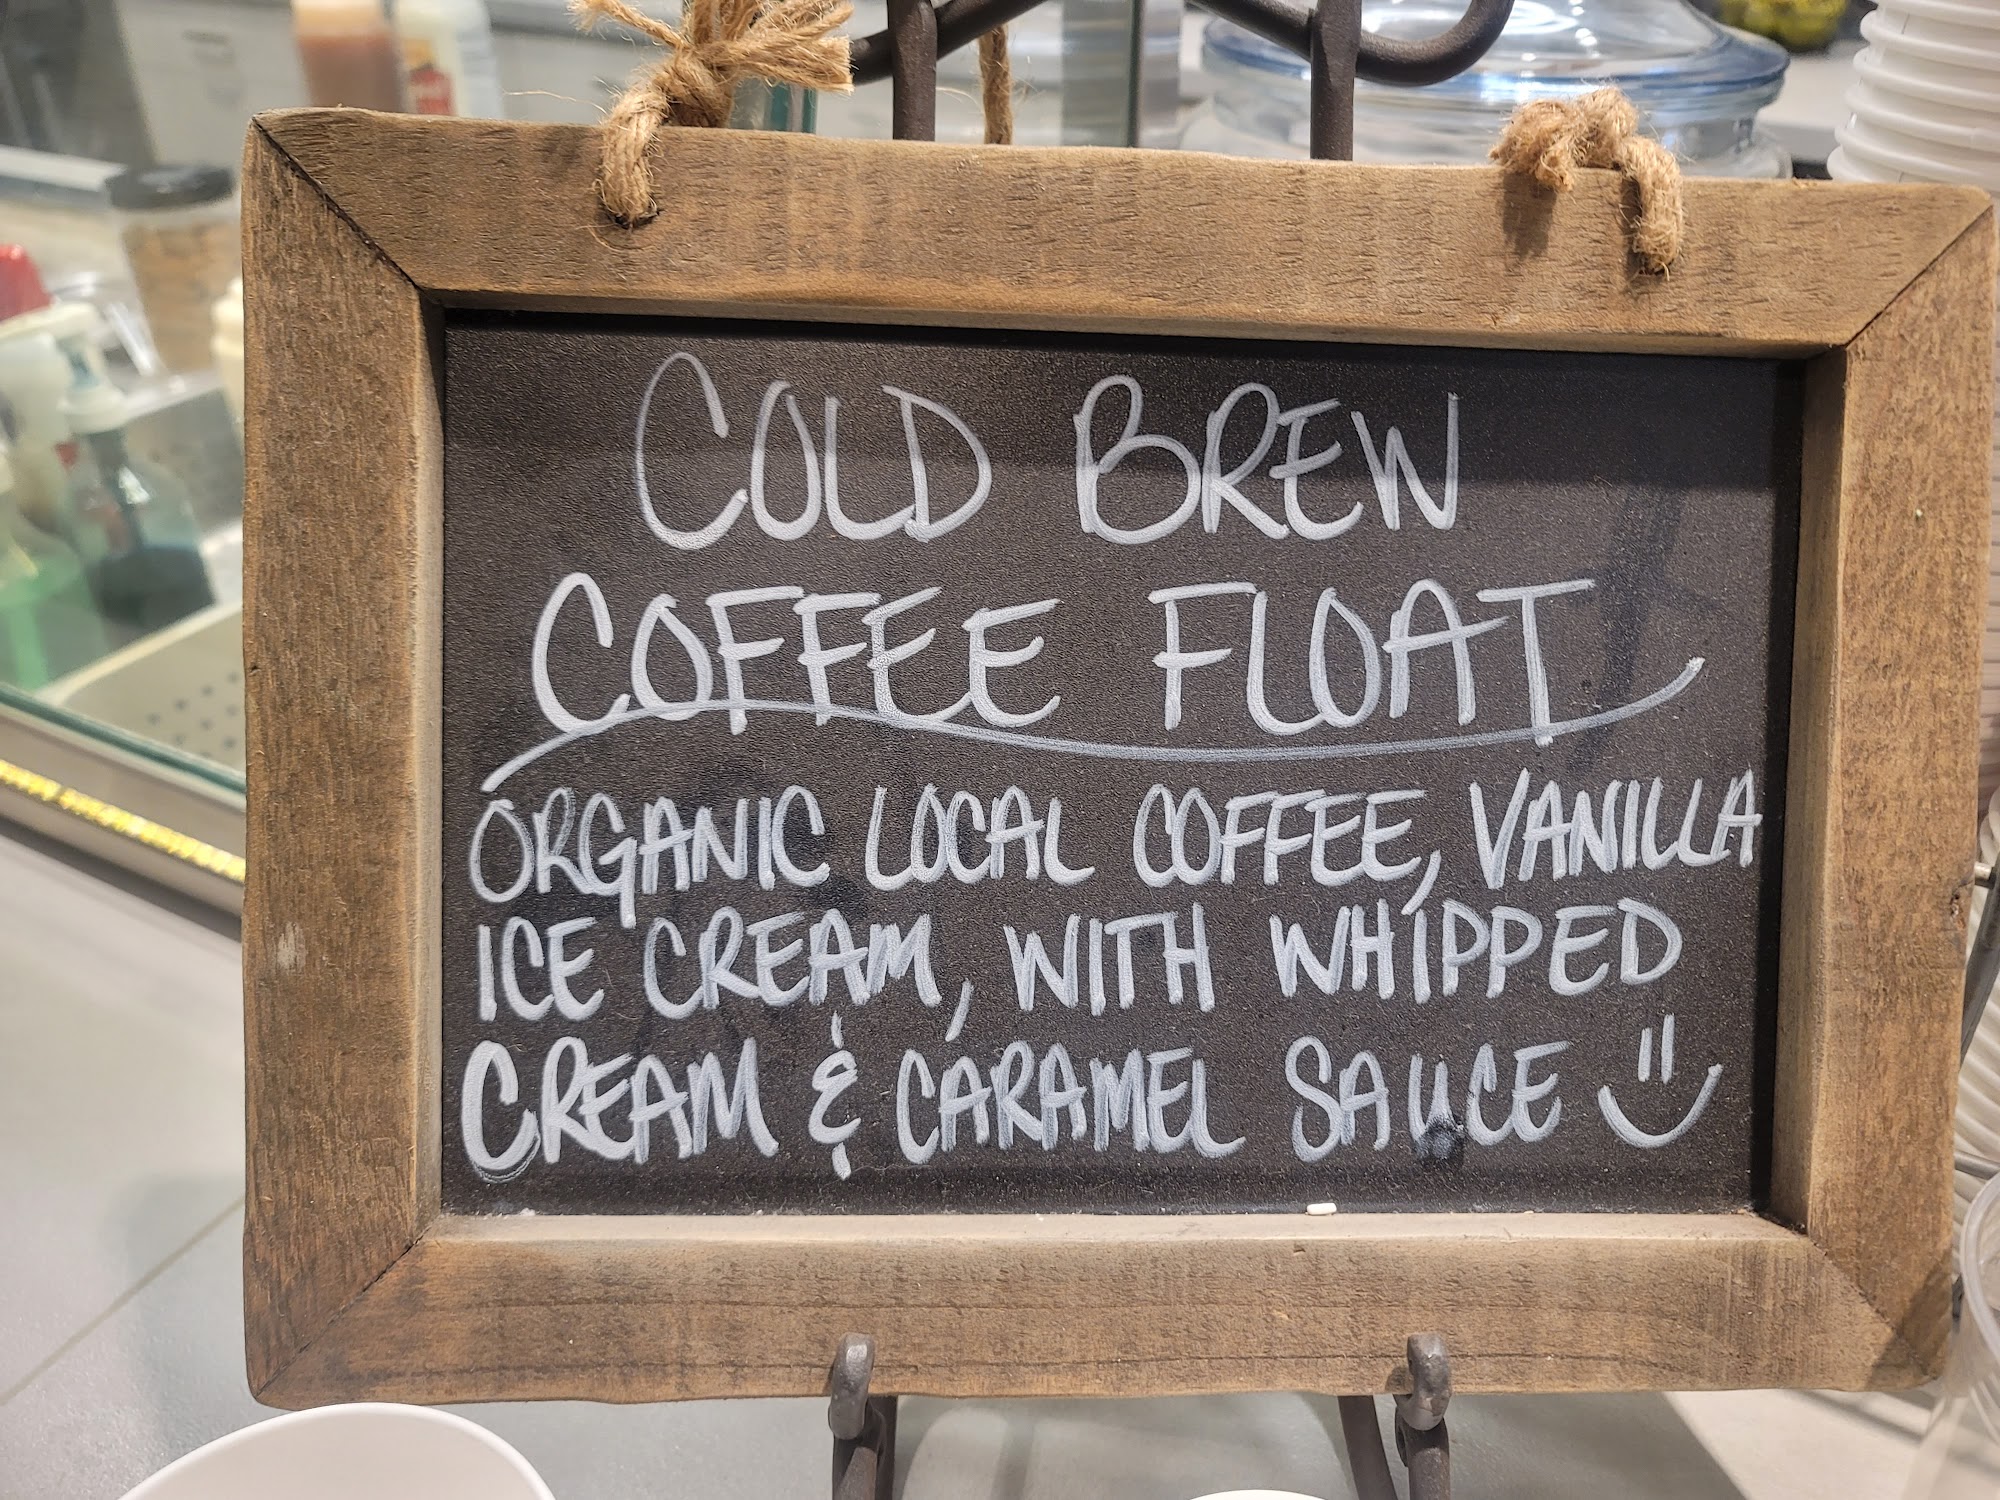 COLD BREW
COFFEE FLOAT
ORGANIC LOCAL COFFEE, VANILLA
ICE CREAM, WITH WHIPPED
CREAM & CARAMEL SAUCE